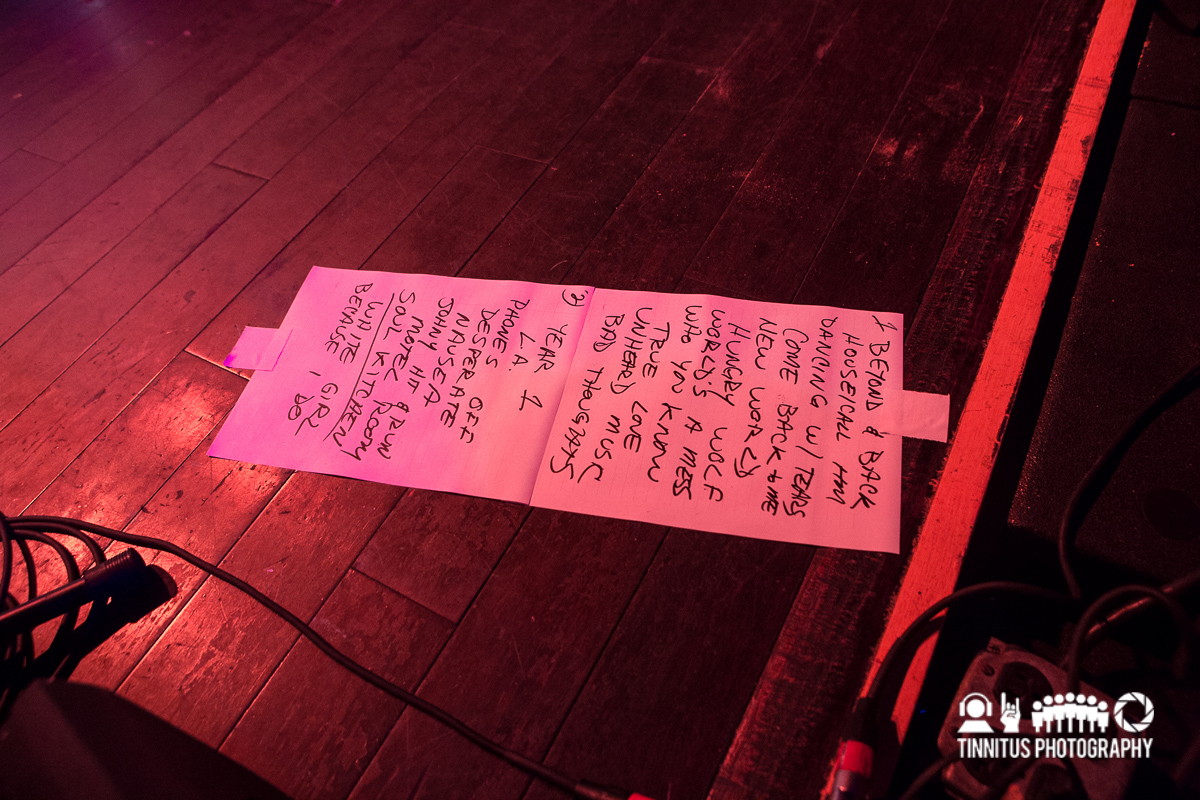 1 BEYOND & BACK
HOUSE I CALL HOME
DANCING W/ TEARS
COME BACK to ME
NEW WORLD
HUNGRY WOLF
WORLD'S A MESS
WHO YOU KNOW
TRUE LOVE
UNHEARD MUSIC
BAD THOUGHTS
2) YEAR 1
L.A.
PHONE'S OFF
DESPERATE
NAUSEA
JOHNY HIT & RUN
MOTEL ROOM
SOUL KITCHEN
WHITE GIRL
BECAUSE I DO
TINNITUS PHOTOGRAPHY